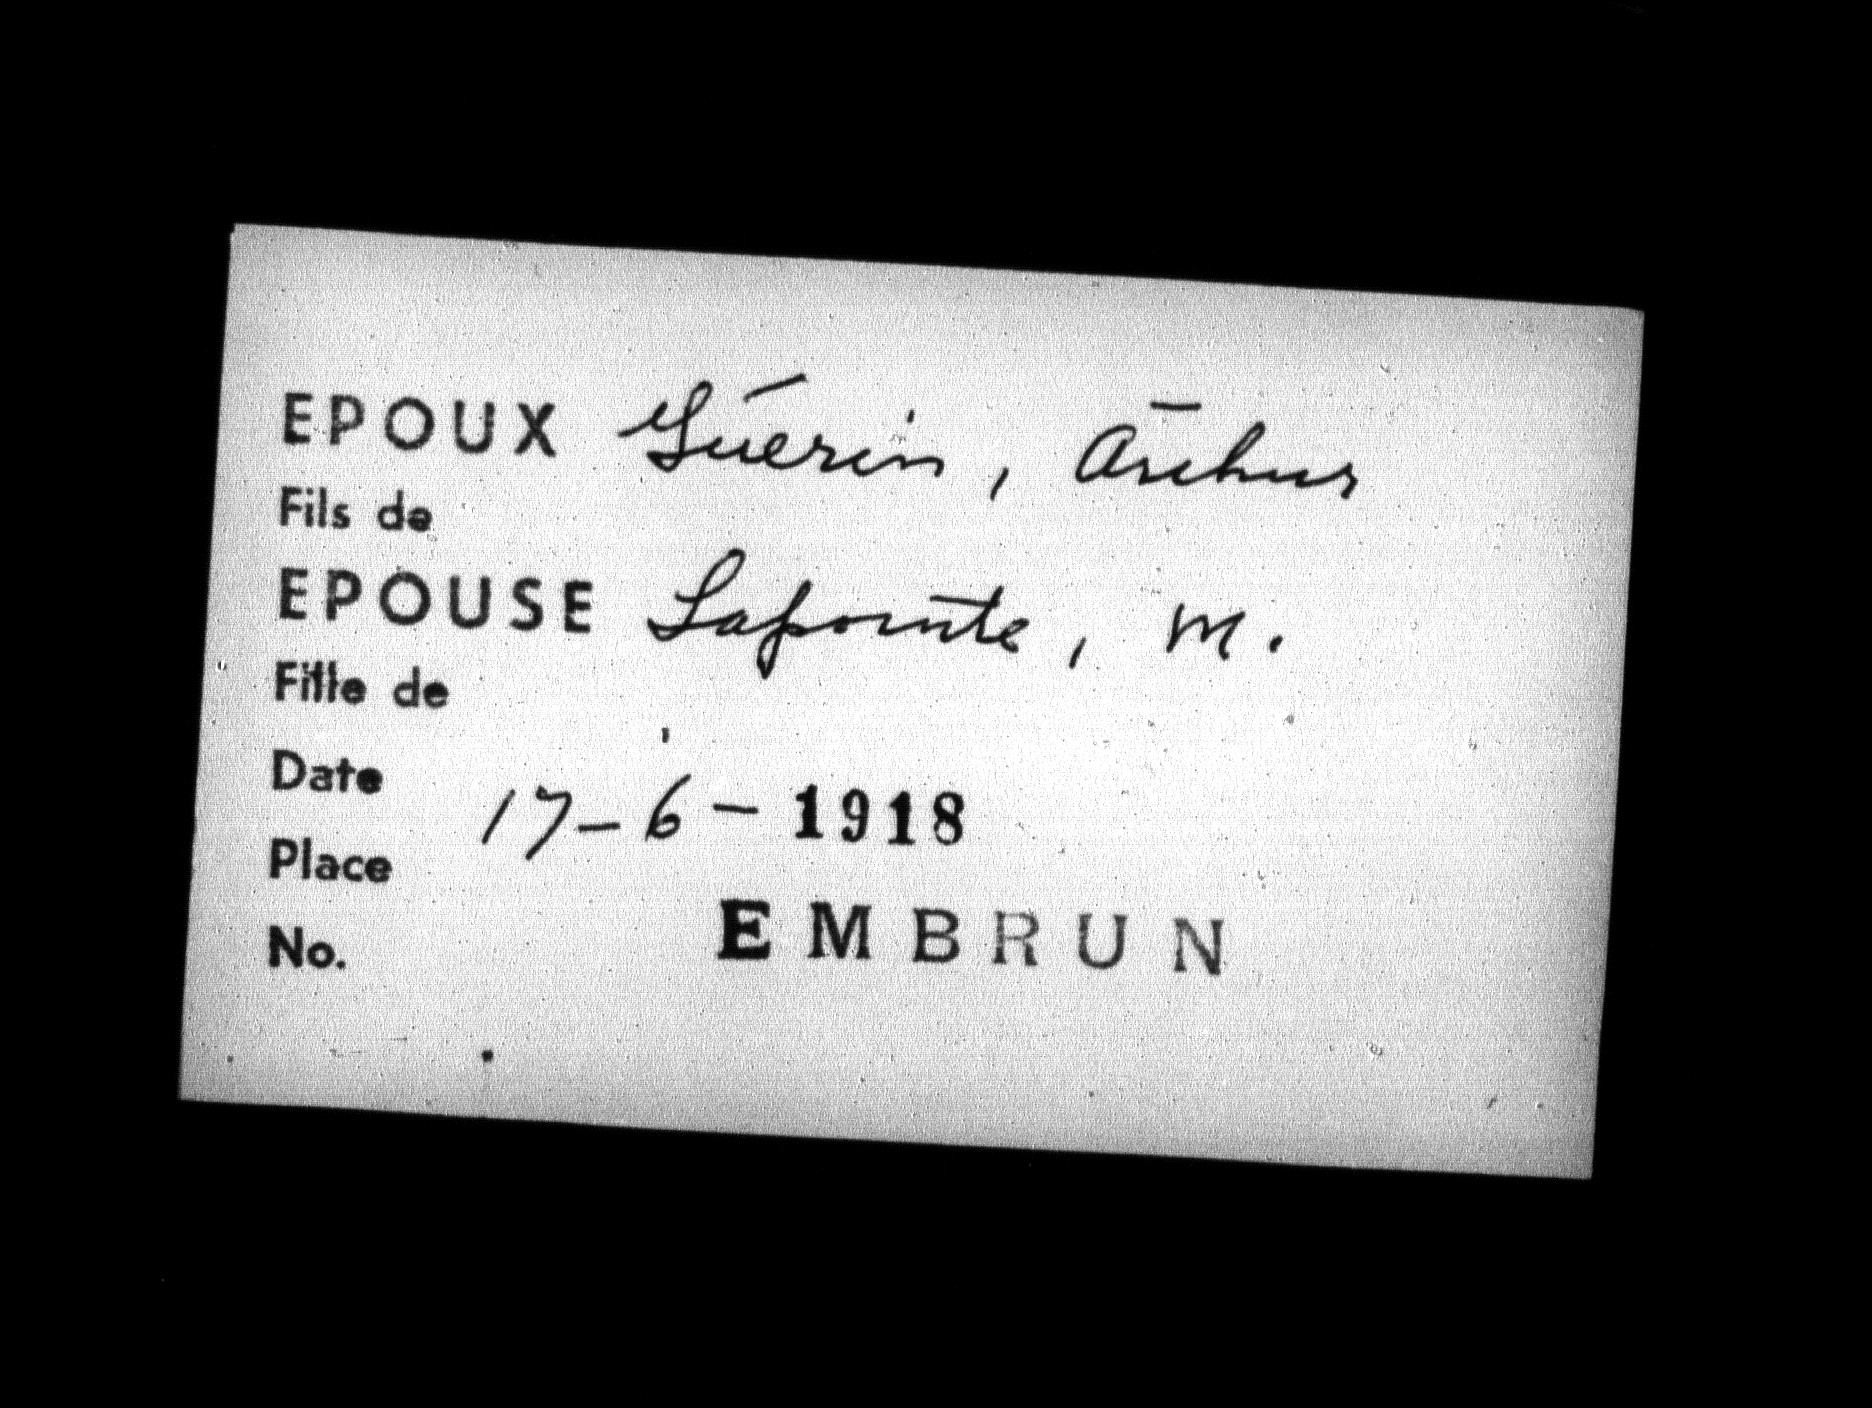 EPOUX Guérin, Arthur
Fils de
EPOUSE Lapointe, M.
Fille de
Date 17-6-1918
Place
EMBRUN
No.